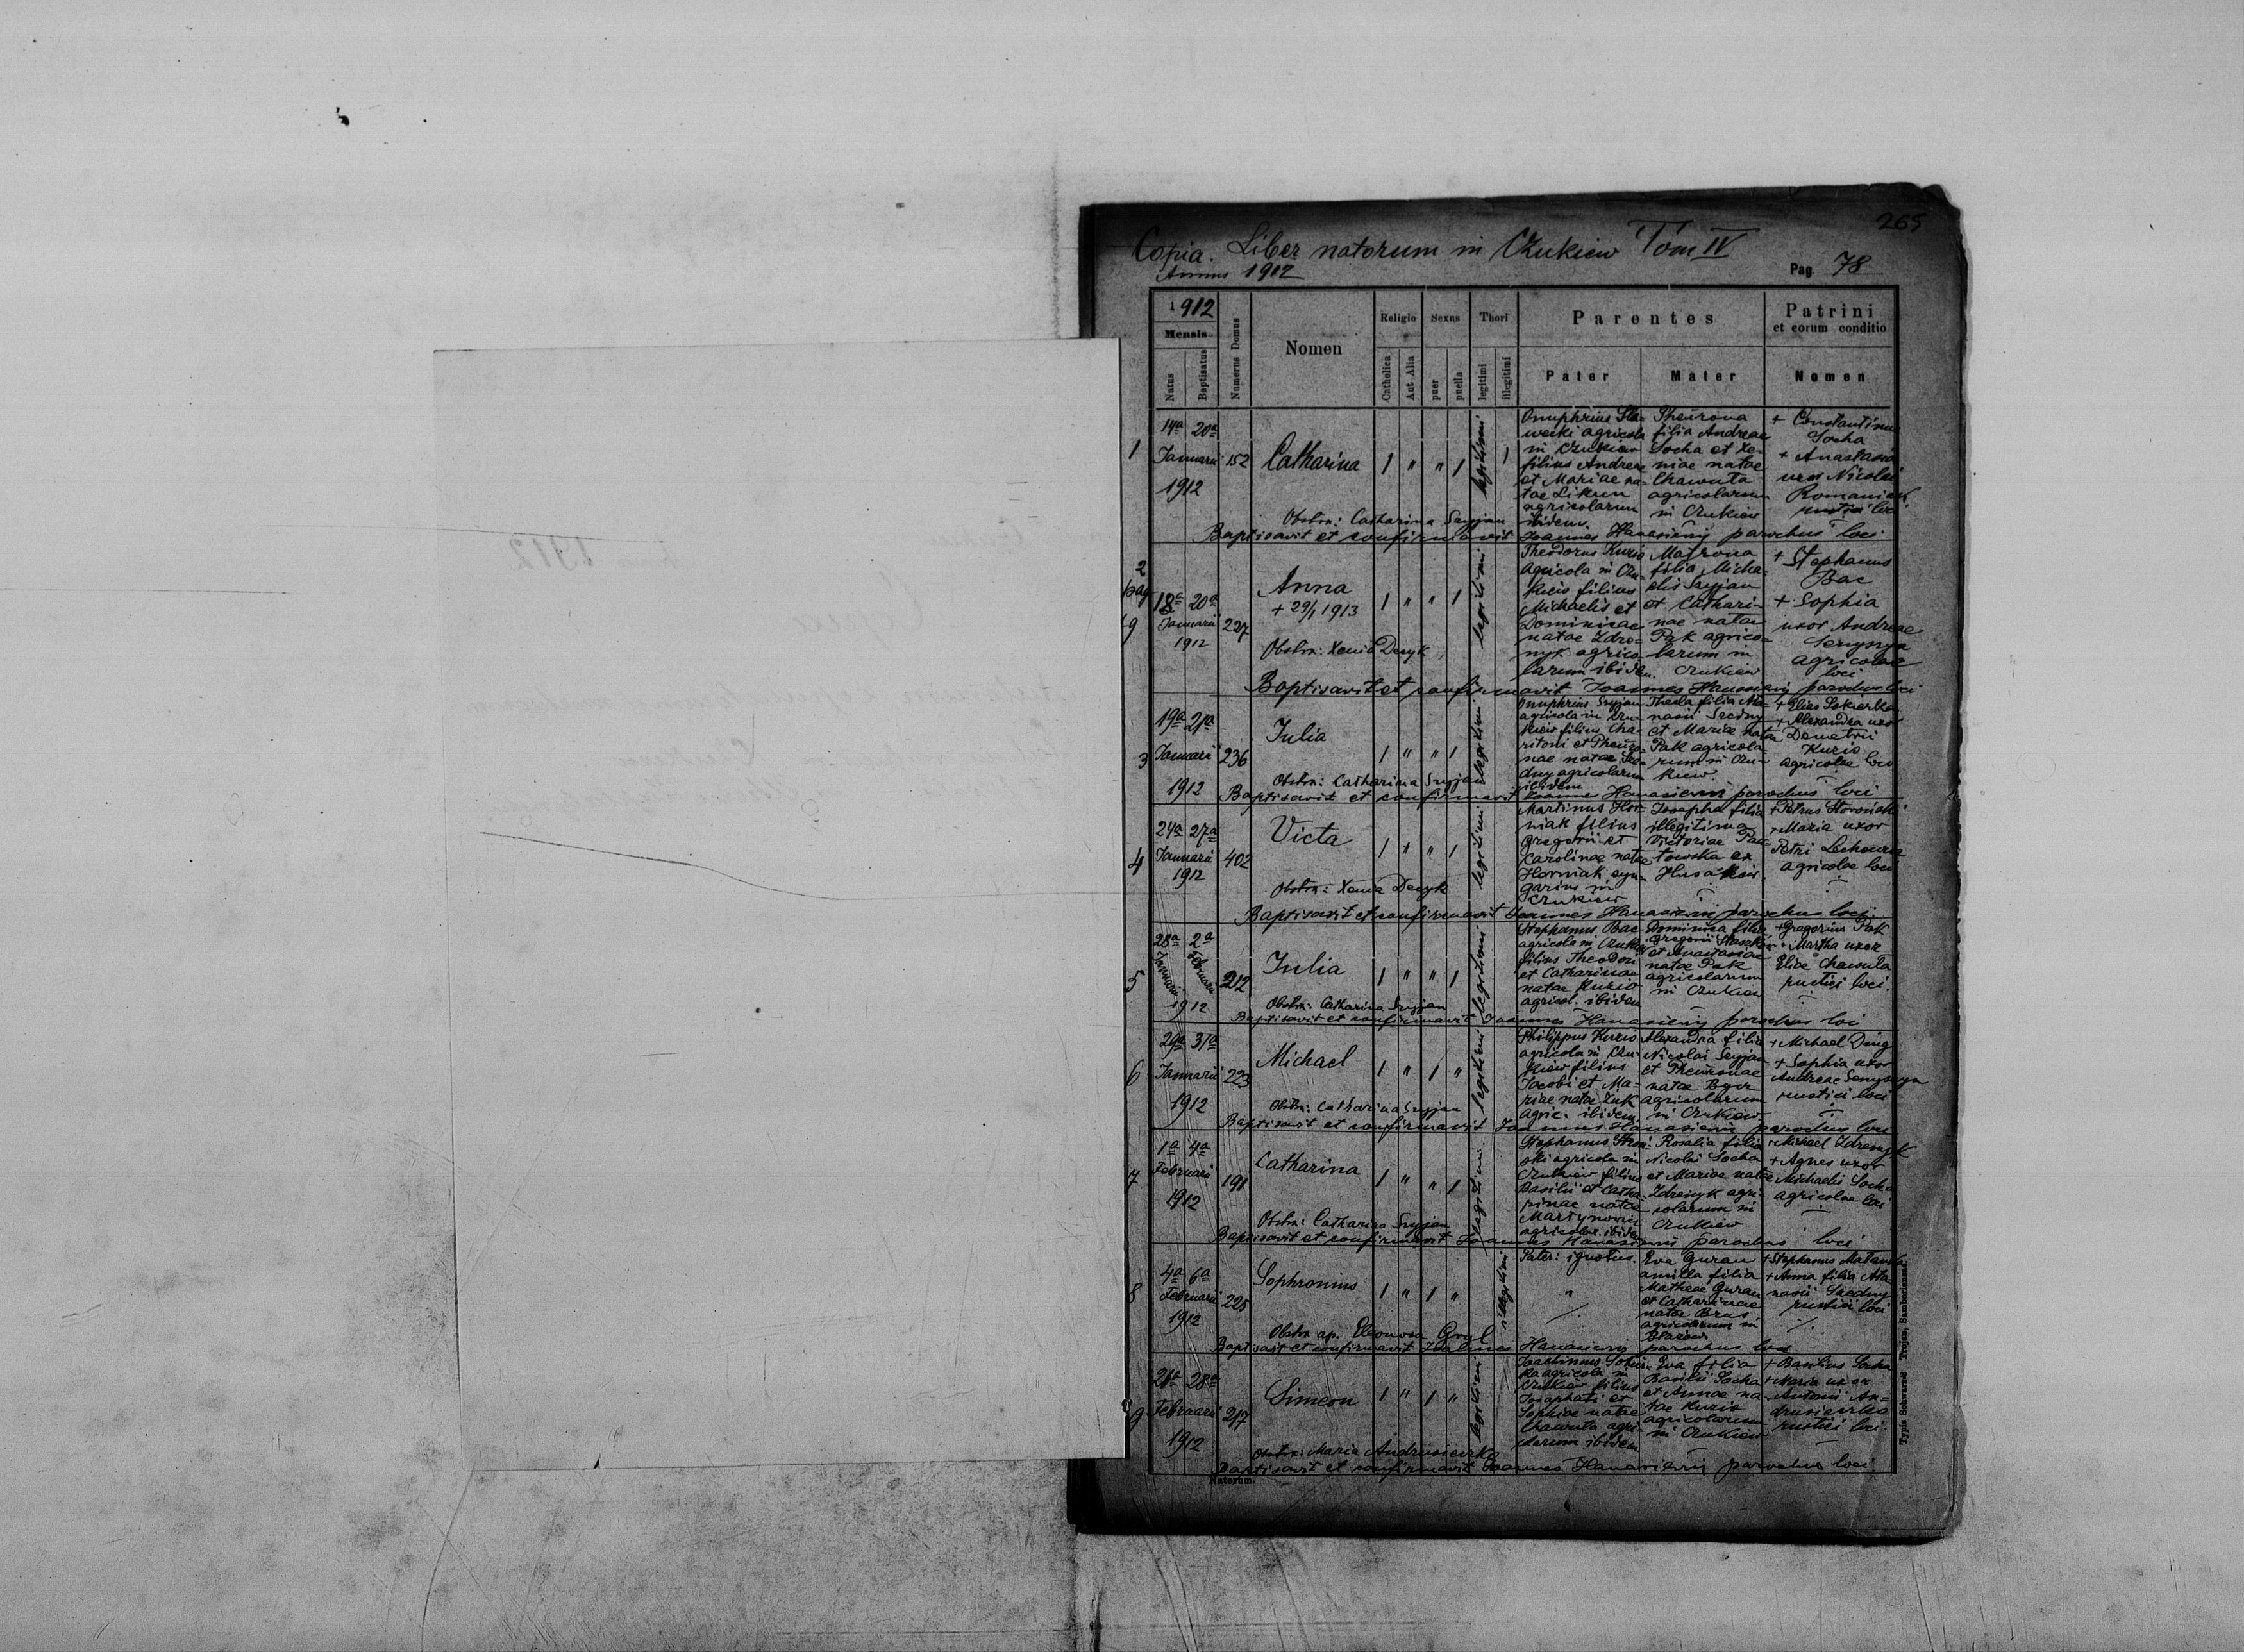 265
Copia. Liber natorum in Czukiew Tom IV
Annus 1912
Pag. 78
1912
Mensis
Natus
Baptisatus
Numerus Domus
Nomen
Religio
Catholica
Aut Alia
Sexus
puer
puella
Thori
legitimi
illegitimi
Parentes
Pater
Mater
Patrini
et eorum conditio
Nomen
1
14a 20a
Januarii
1912
152
Catharina
legitimi
Onuphrius
agricola
in Czukiew
filius Andreae
et Mariae na-
tae
agricolarum
ibidem.
Pheurona
filia Andreae
Socha et Xe-
niae natae
Chawuta
agricolarum
in Czukiew
+ Constantinus
Socha
+ Anastasia
uxor Nicolai
Romaniak
rustici loci
Obstn: Catharina Sryjan
Baptisavit et confirmavit Joannes Hanasiewij parochus loci
2
pag
18a 20a
Januarii
1912
227
Anna
+ 29/1 1913
legitimi
Theodorus Kuzio
agricola in Czu-
kiew filius
Michaelis et
Dominicae
natae Zdre-
nyk agrico-
larum ibidem.
Matrona
filia Micha-
elis Sryjan
et Cathari-
nae natae
Pak agrico-
larum in
Czukiew
+ Stephanus
Bac
+ Sophia
uxor Andreae
Senyszyn
agricolae
loci
Obstn: Xenia Denyk
Baptisavit et confirmavit Joannes Hanasiewij parochus loci
3
19a 21a
Januarii
1912
236
Julia
legitimi
Onuphrius Sryjan
agricola in Czu-
kiew filius Cha-
ritoni et Pheuro-
nae natae Sre-
dny agricolarum
ibidem
Thecla filia Ata-
nasii Sredny
et Mariae natae
Pak agricola-
rum in Czu-
kiew
+ Elias
+ Alexandra uxor
Demetrii
Kuzio
agricolae loci
Obstn: Catharina Sryjan
Baptisavit et confirmavit Joannes Hanasiewij parochus loci
4
24a 27a
Januarii
1912
402
Victa
legitimi
Martinus Hor-
niak filius
Gregorii et
Carolinae natae
Horniak
in
Czukiew
Josepha filia
illegitima
Victoriae
ex
Husaków
+ Petrus
+ Maria uxor
Petri
agricolae loci
Obstn: Xenia Denyk
Baptisavit et confirmavit Joannes Hanasiewij parochus loci
5
28a 2a
Januarii Februarii
1912
212
Julia
legitimi
Stephanus Bac
agricola in Czukiew
filius Theodori
et Catharinae
natae Kuzio
agricol. ibidem
Dominica filia
Gregorii
et Anastasiae
natae Pak
agricolarum
in Czukiew
+ Gregorius Pak
+ Martha uxor
Eliae Chawuta
rustici loci.
Obstn: Catharina Sryjan
Baptisavit et confirmavit Joannes Hanasiewij parochus loci
6
29a 31a
Januarii
1912
223
Michael
legitimi
Philippus Kuzio
agricola in Czu-
kiew filius
Jacobi et Ma-
riae natae Żuk
agric. ibidem
Alexandra filia
Nicolai Sryjan
et Pheuronae
natae
agricolarum
in Czukiew
+ Michael
+ Sophia uxor
Andreae Senyszyn
rustici loci
Obstn: Catharina Sryjan
Baptisavit et confirmavit Joannes Hanasiewij parochus loci
7
1a 4a
Februarii
1912
191
Catharina
legitimi
Stephanus
agricola in
Czukiew filius
Basilii et Catha-
rinae natae
Martynowicz
agricolar. ibidem
Rosalia filia
Nicolai Socha
et Mariae natae
Zdrenyk agri-
colarum in
Czukiew
+ Michael Zdrenyk
+ Agnes uxor
Michaelis Socha
agricolae loci
Obstn: Catharina Sryjan
Baptisavit et confirmavit Joannes Hanasiewij parochus loci
8
4a 6a
Februarii
1912
225
Sophronius
illegitimi
Pater: ignotus.
Eva Guran
ancilla filia
Matheae Guran
et Catharinae
natae Brus
agricolarum in
+ Stephanus
+ Anna filia Ata-
nasii Sredny
rustici loci
Obstn. ap. Eleonora Gryl
Baptisavit et confirmavit Joannes Hanasiewij parochus loci
9
21a 28a
Februarii
1912
217
Simeon
legitimi
Joachimus
agricola in
Czukiew filius
Josaphati et
Sophiae natae
Chawuta agri-
colarum ibidem
Eva filia
Basilii Socha
et Annae na-
tae Kuzio
agricolarum
in Czukiew
+ Basilius Socha
+ Maria uxor
Antonii An-
drusiewka
rustici loci
Obstn: Maria Andrusiewka
Baptisavit et confirmavit Joannes Hanasiewij parochus loci
Natorum.
Typis Schwarz & Trojan, Samboriensis.
1912